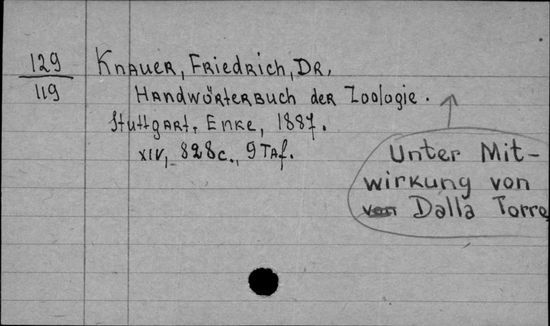 129
119
Knauer, Friedrich, Dr.
Handwörterbuch der Zoologie.
Stuttgart, Enke, 1887.
XIV, 828c., 9 Taf.
Unter Mit-
wirkung von
von Dalla Torre